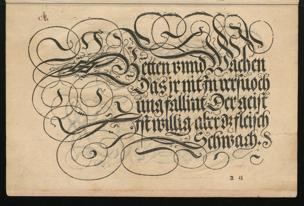 Betten vnnd Wachen
Das jr nit in versuoch
ung fallint. Der geist
ist willig aber dz fleisch
Schwach.